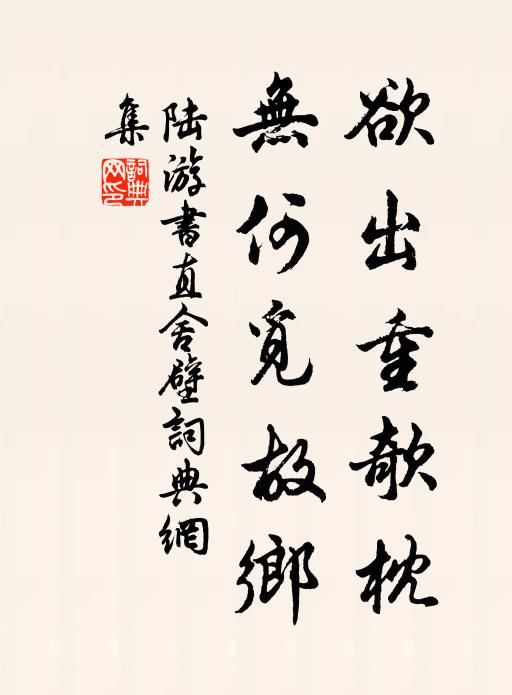 欲出重欹枕
無何覓故鄉
陆游書直舍壁詞典網
集
詞典網印